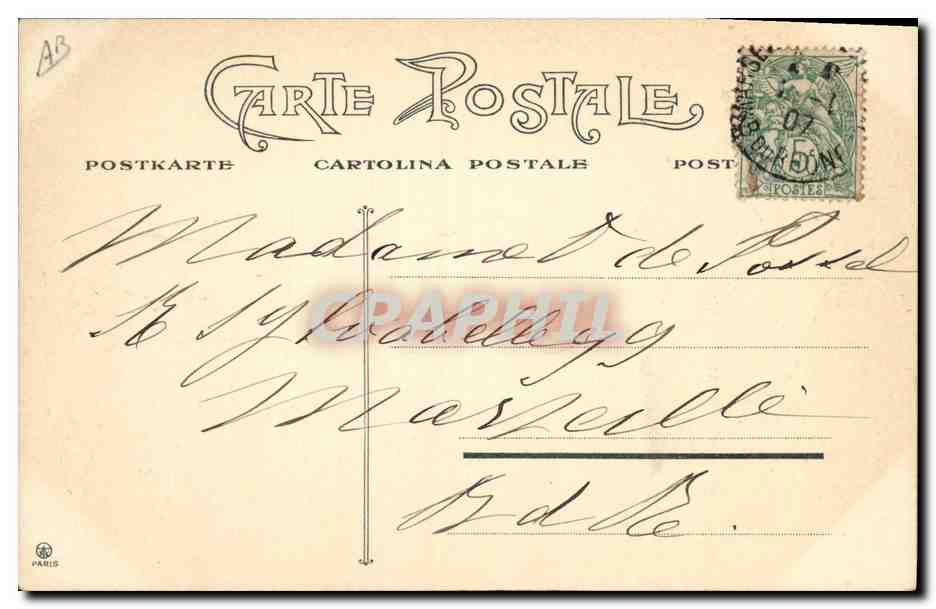 AB
CARTE POSTALE
POSTKARTE CARTOLINA POSTALE POST
07
BOU RHONE
5
POSTES
Madame D de
R Sylvabelle 99
CPARHIL
Marseille
B d R.
PARIS